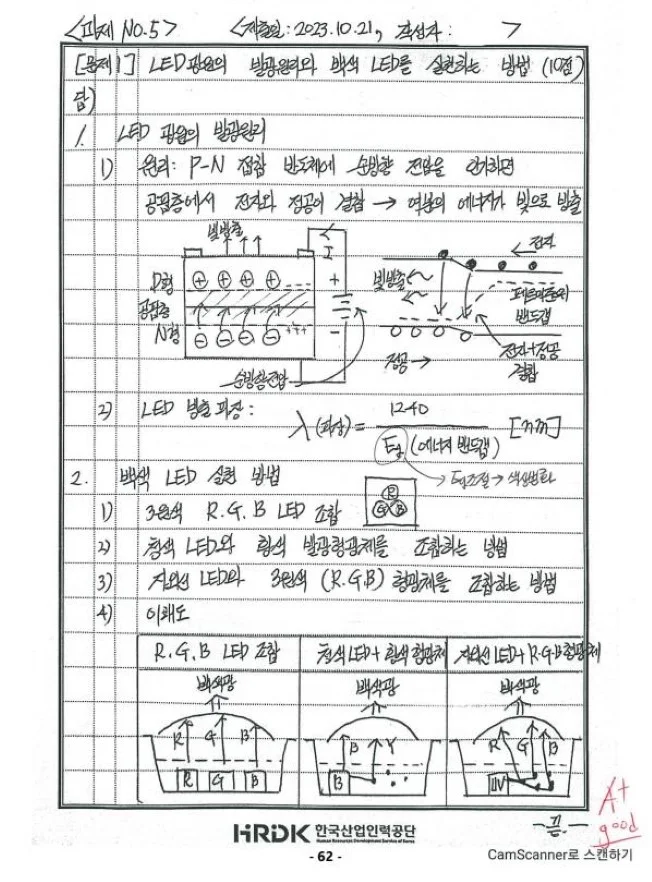 <과제 No.5> <제출일: 2023.10.21, 작성자: >
[문제1] LED광원의 발광원리와 백색 LED를 실현하는 방법 (10점)
답)
1. LED 광원의 발광원리
1) 원리: P-N 접합 반도체에 순방향 전압을 인가하면
공핍층에서 전자와 정공이 결합 → 여분의 에너지가 빛으로 방출
빛방출
I
P형
공핍층
N형
순방향전압
전자
빛방출
밴드갭
전자+정공
결합
정공→
2) LED 방출파장: λ(파장) = 1240 / Eg (에너지 밴드갭) [nm]
→ Eg조절 → 색상변화
2. 백색 LED 실현 방법
1) 3원색 R.G.B LED 조합
R
G B
2) 청색 LED와 황색 발광형광체를 조합하는 방법
3) 자외선 LED와 3원색 (R.G.B) 형광체를 조합하는 방법
4) 이해도
R.G.B LED 조합 청색LED+황색형광체 자외선LED+R.G.B형광체
백색광 백색광 백색광
R G B B Y R G B
R G B B UV
-끝-
A+
good
HRDK 한국산업인력공단
Human Resources Development Service of Korea
- 62 -
CamScanner로 스캔하기